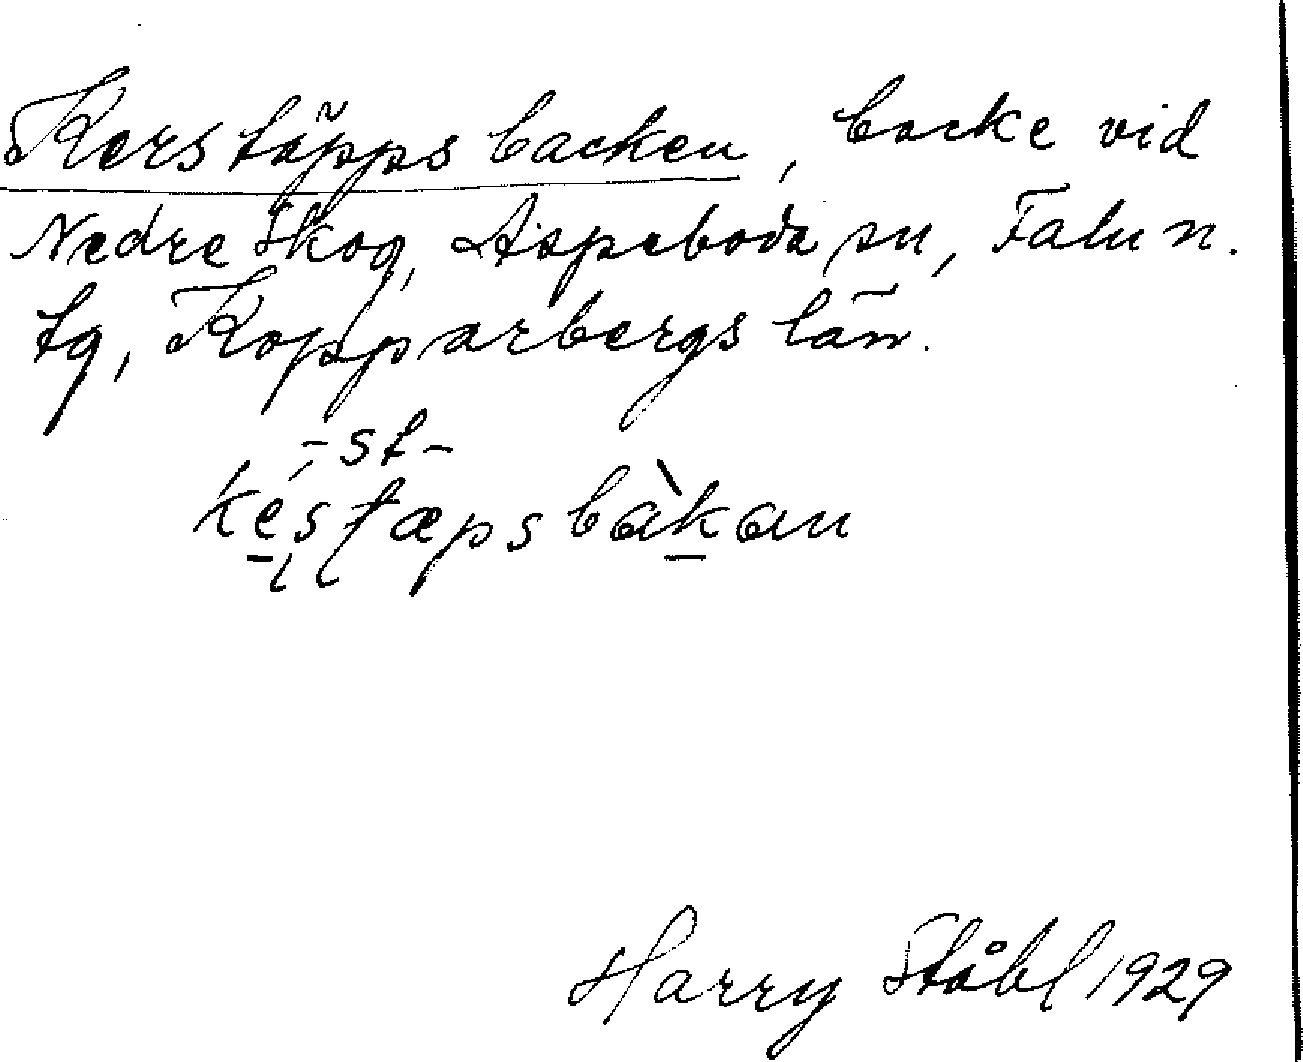 Kerstäppsbacken, backe vid
Nedre Skog, Aspeboda sn, Falu n.
tg, Kopparbergs län.
-st-
késtæpsbàkan
Harry Ståhl 1929